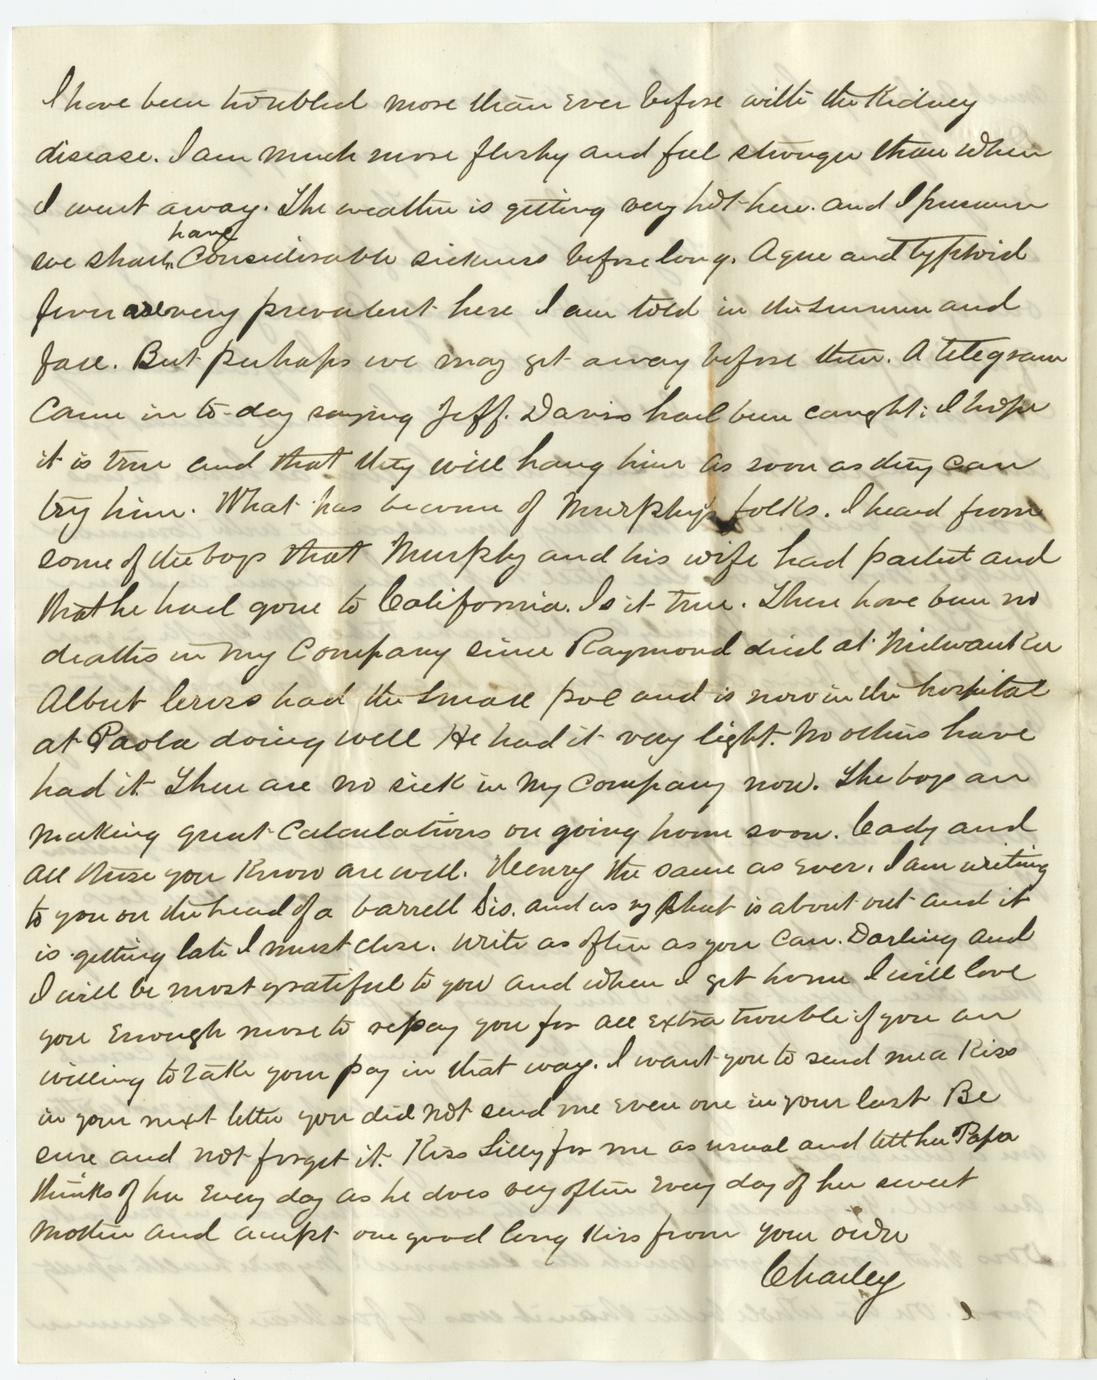 I have been troubled more than Ever before with the Kidney
disease. I am much more fleshy and feel stronger than when
I went away. The weather is getting very hot here. and I presume
have
we shall Considerable sickness before long. Ague and typhoid
fever are very prevalent here I am told in the summer and
fall. But perhaps we may get away before then. A telegram
Came in to-day saying Jeff. Davis had been caught; I hope
it is true and that they will hang him as soon as they can
try him. What has become of Murphy's folks. I heard from
some of the boys that Murphy and his wife had parted and
that he had gone to California. Is it true. There have been no
deaths in my Company since Raymond died at Milwaukee
Albert Cross had the small pox and is now in the hospital
at Paola doing well He had it very light. No others have
had it. There are no sick in my Company now. The boys are
making great Calculations on going home soon. Cady and
all those you Know are well. Henry the same as Ever. I am writing
to you on the head of a barrell Sis. and as my sheet is about out and it
is getting late I must close. Write as often as you Can. Darling and
I will be most grateful to you and when I get home I will love
you Enough more to repay you for all Extra trouble if you are
willing to take your pay in that way. I want you to send me a Kiss
in your next letter you did not send me even one in your last Be
sure and not forget it. Kiss Lilly for me as usual and tell her Papa
thinks of her Every day as he does very often Every day of her sweet
mother and accept one good long Kiss from your own
Charley